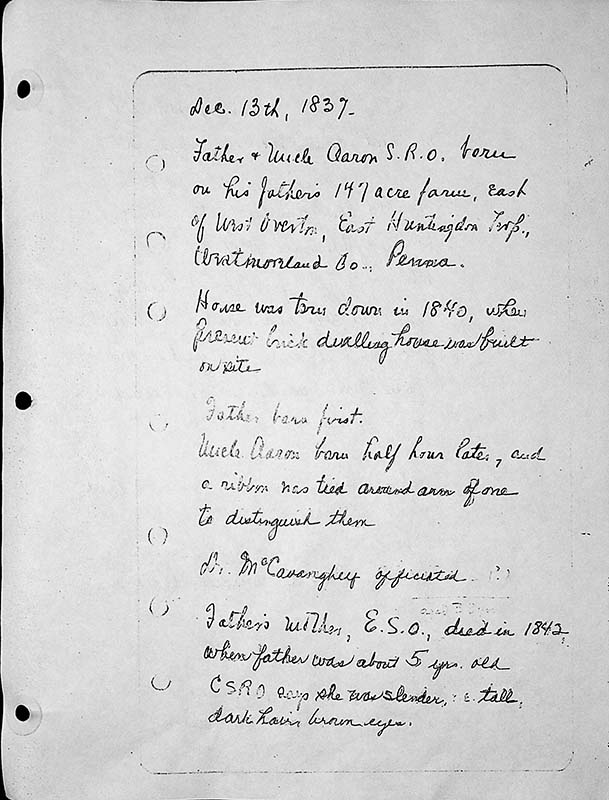 Dec. 13th, 1837-
Father & Uncle Aaron S.R.O. born
on his father's 147 acre farm, East
of West Overton, East Huntingdon Twp.,
Westmoreland Co., Penna.
House was torn down in 1840, when
present brick dwelling house was built
on site
Father born first.
Uncle Aaron born half hour later, and
a ribbon was tied around arm of one
to distinguish them
Dr. officiated
Father's mother, E.S.O., died in 1842,
when father was about 5 yrs. old
CSRO says she was slender, tall,
dark hair, brown eyes.